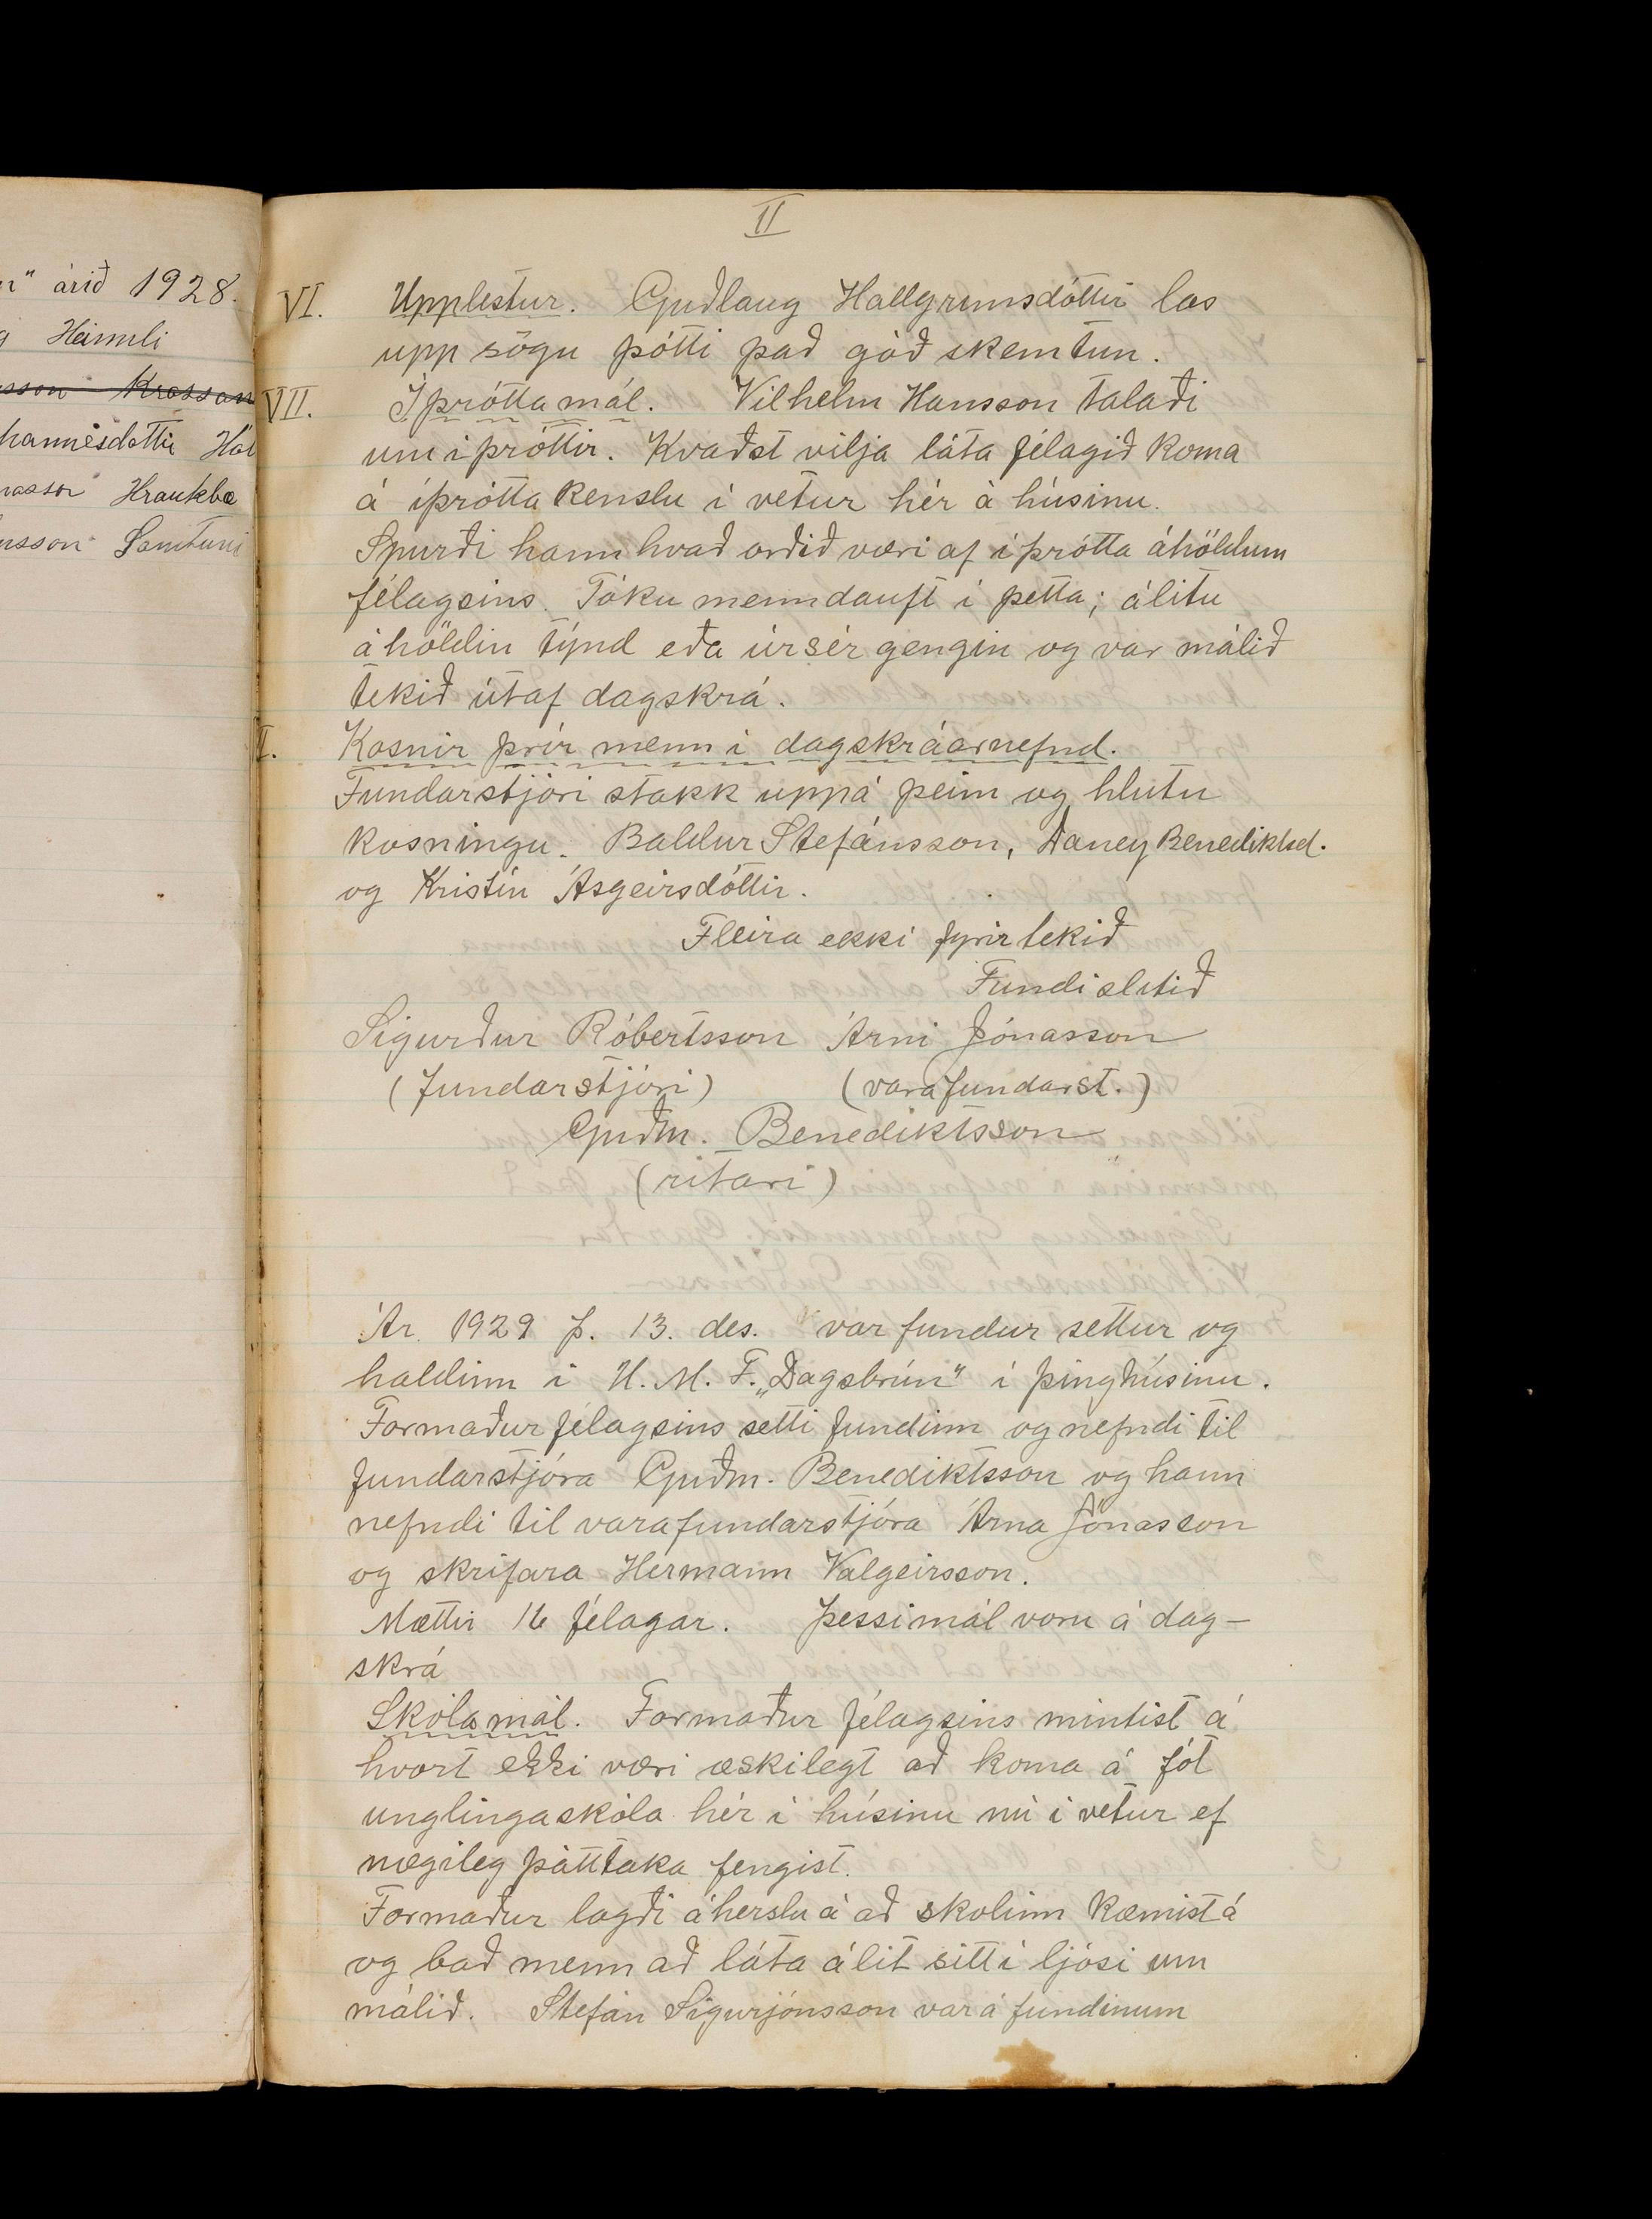 árið 1928.
Heimli
sson Krossan
hannesdóttir
nasson Hraukbæ
usson Samtuni
II
VI. Upplestur. Guðlaug Hallgrimsdóttir las
upp sögu þótti það góð skemtun.
VII. Íþróttamál. Vilhelm Hansson talaði
um iþróttir. Kvaðst vilja láta félagið koma
á íþróttakenslu í vetur hér á húsinu.
Spurði hann hvað orðið væri af íþrótta áhöldum
félagsins. Tóku menn dauft i þetta; álitu
áhöldin týnd eða úr sér gengin og var málið
tekið útaf dagskrá.
I. Kosnir þrír menn í dagskráarnefnd.
Fundarstjóri stakk uppá þeim og hlutu
kosningu. Baldur Stefánsson, Daney Benediktsd.
og Kristín Ásgeirsdóttir.
Fleira ekki fyrir tekið
Fundi slitið
Sigurður Róbertsson Árni Jónasson
(fundarstjóri) (varafundarst.)
Guðm. Benediktsson
(ritari)
Ár 1929 þ. 13. des. var fundur settur og
haldinn í U. M. F. „Dagsbrún" í þinghúsinu.
Formaður félagsins setti fundinn og nefndi til
fundarstjóra Guðm. Benediktsson og hann
nefndi til varafundarstjóra Árna Jónasson
og skrifara Hermann Valgeirsson.
Mættir 16 félagar. Þessi mál voru á dag-
skrá
Skólamál. Formaður félagsins mintist á
hvort ekki væri æskilegt að koma á fót
unglingaskóla hér í húsinu nú í vetur ef
nægileg þátttaka fengist.
Formaður lagði áherslu á að skolinn kæmist á
og bað menn að láta álit sitt í ljósi um
málið. Stefán Sigurjónsson var á fundinum